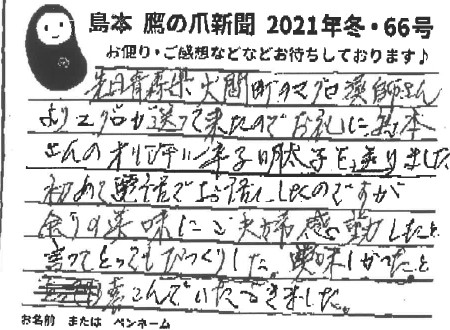 島本 鷹の爪新聞 2021年冬・66号
お便り・ご感想などなどお待ちしております♪
先日青森県大間町のマグロ漁師さん
よりマグロが送って来たのでお礼に島本
さんのオリジナル辛子明太子を送りました
初めて電話でお話ししたのですが
余りの美味にご夫婦感動したと
言ってとってもびっくりした。美味しかったと
喜こんでいただきました。
お名前 または ペンネーム